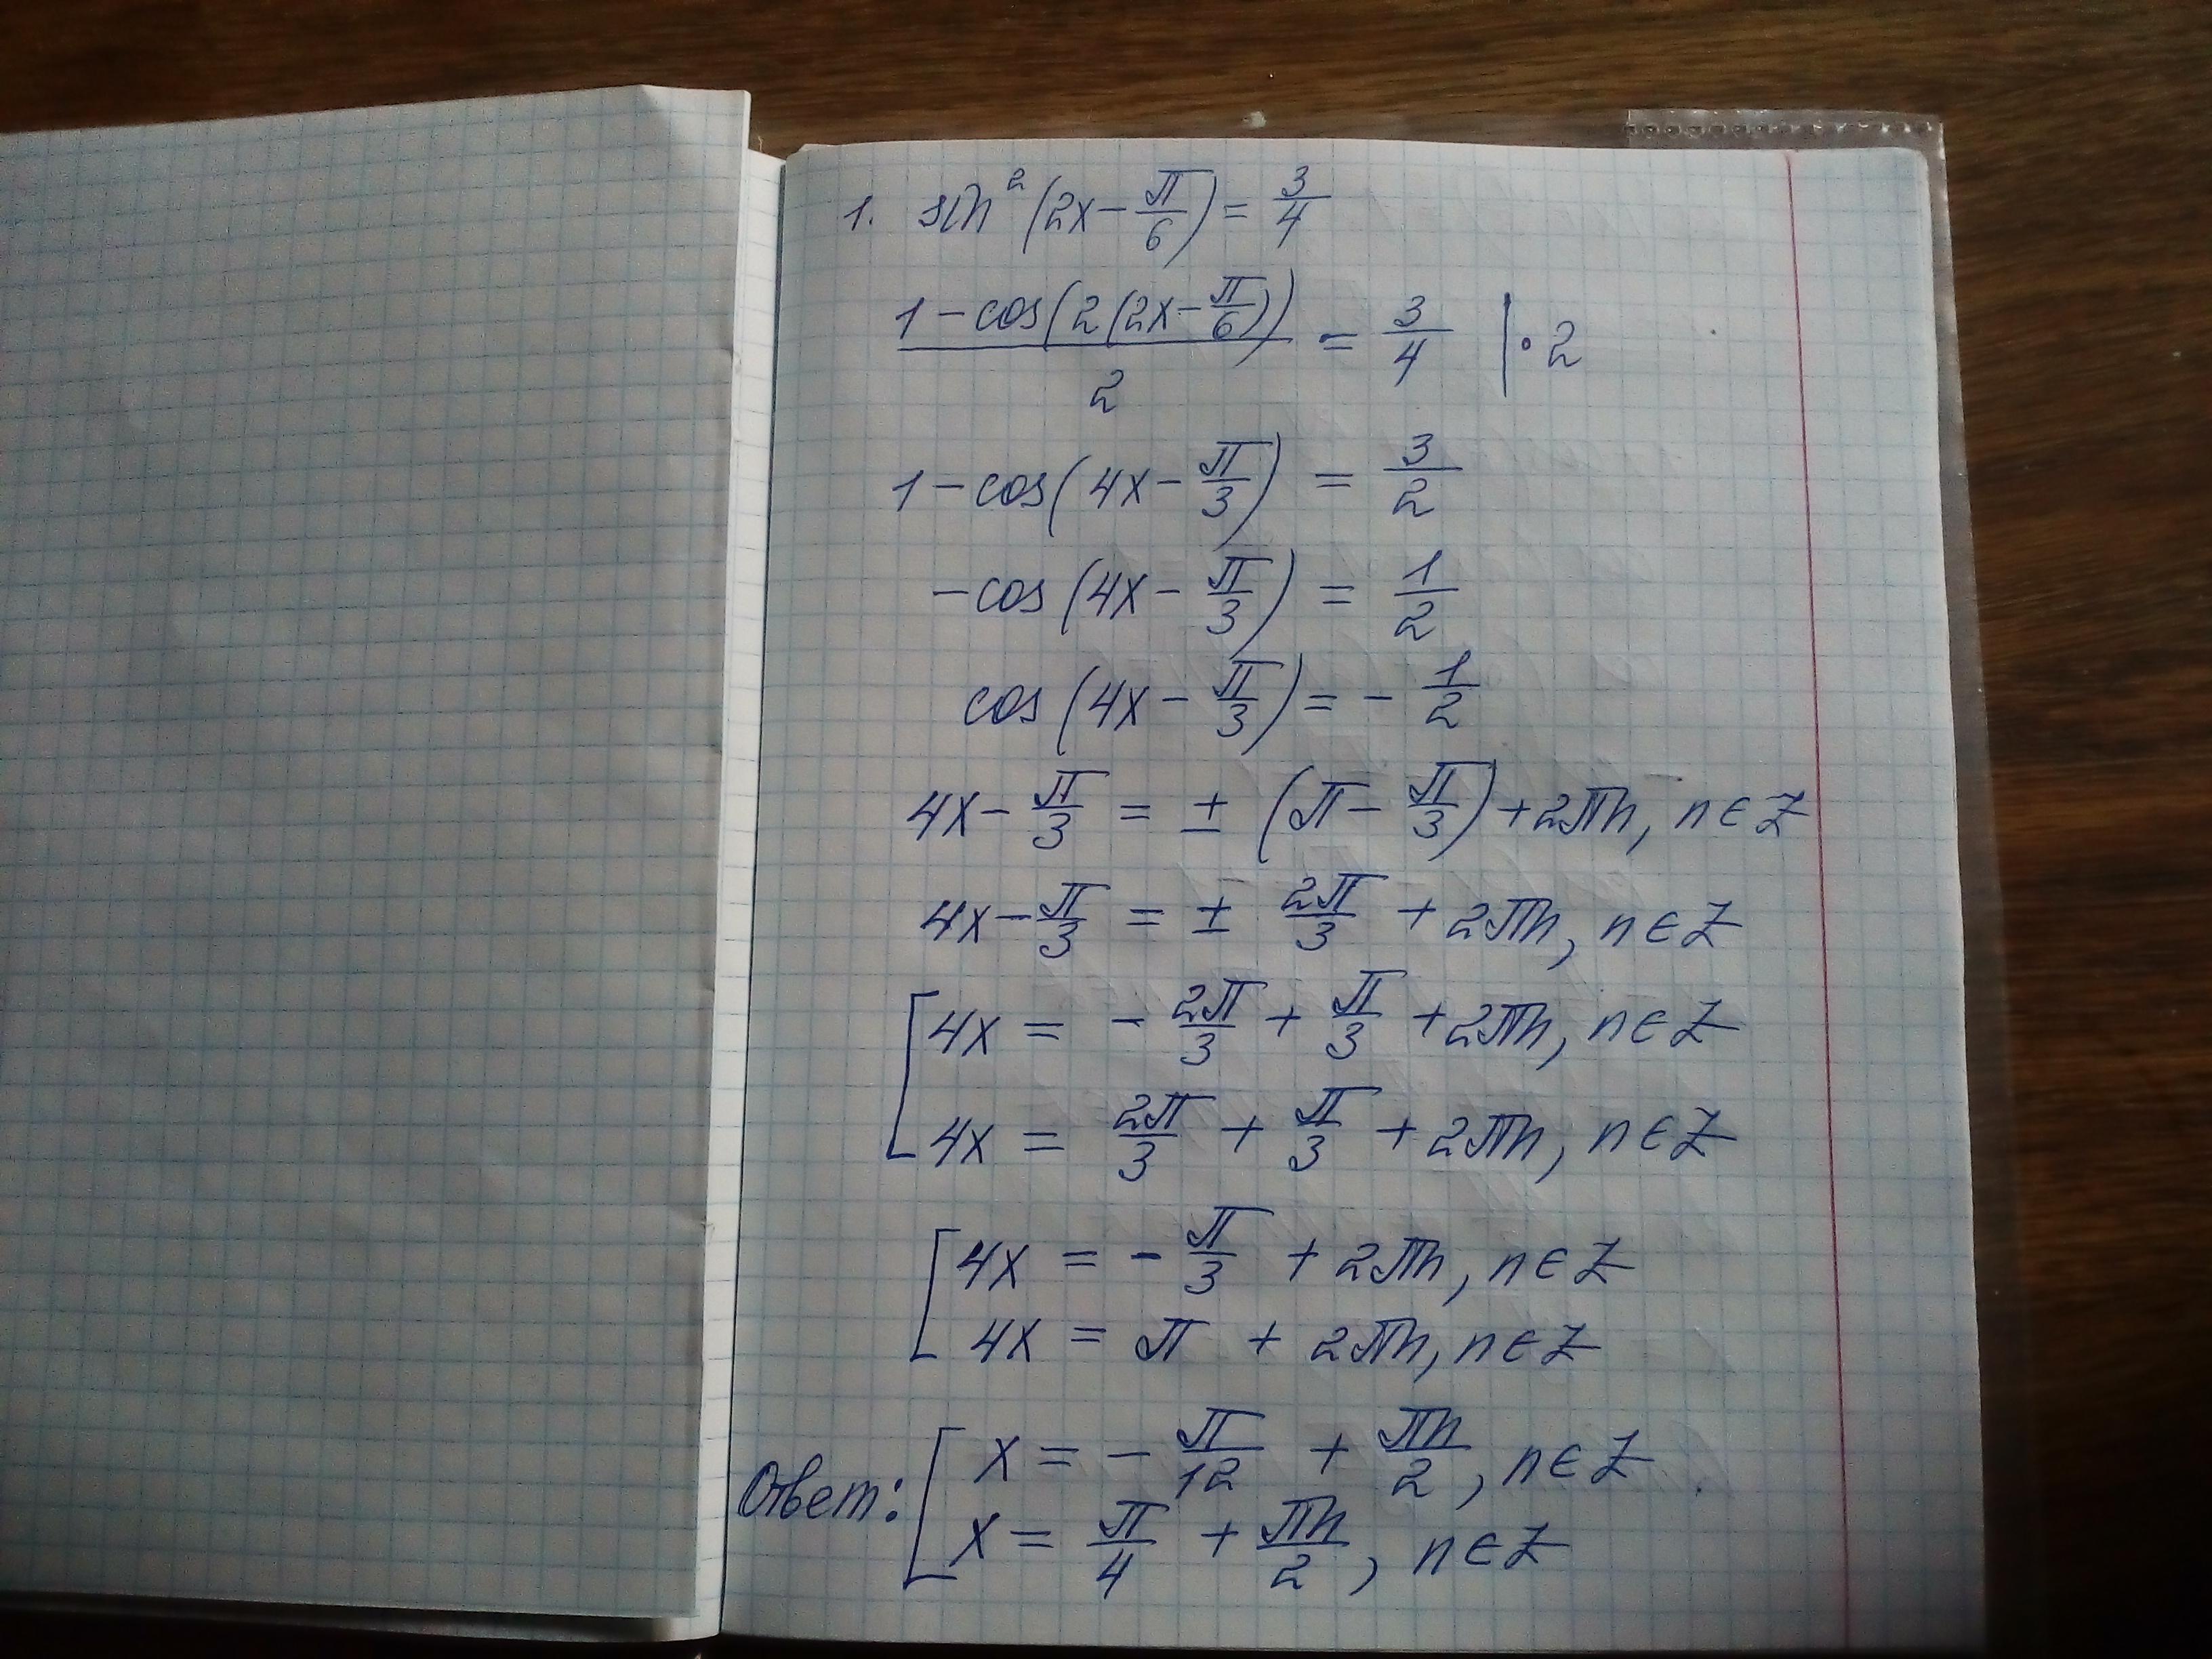 1. sin²(2x - π/6) = 3/4
(1 - cos(2(2x - π/6)))/2 = 3/4 | · 2
1 - cos(4x - π/3) = 3/2
- cos(4x - π/3) = 1/2
cos(4x - π/3) = - 1/2
4x - π/3 = ± (π - π/3) + 2πn, n ∈ Z
4x - π/3 = ± 2π/3 + 2πn, n ∈ Z
[ 4x = - 2π/3 + π/3 + 2πn, n ∈ Z
4x = 2π/3 + π/3 + 2πn, n ∈ Z
[ 4x = - π/3 + 2πn, n ∈ Z
4x = π + 2πn, n ∈ Z
Ответ: [ x = - π/12 + πn/2, n ∈ Z
x = π/4 + πn/2, n ∈ Z